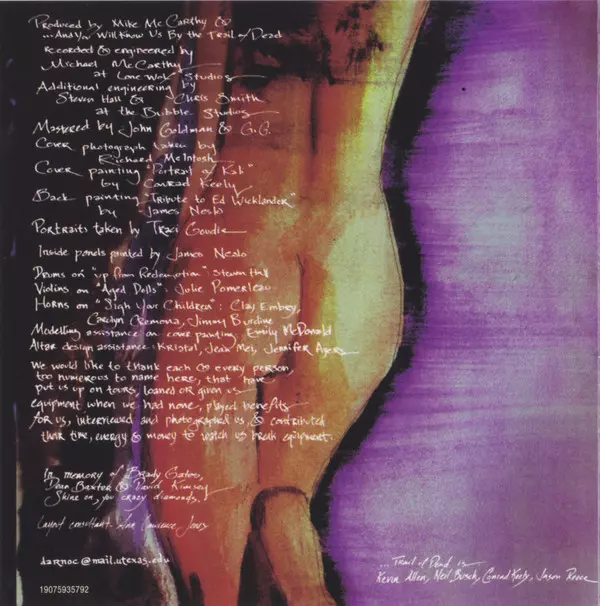 Produced by Mike McCarthy &
...And You Will Know Us By the Trail of Dead
recorded & engineered by
Michael McCarthy
at Lone Wolf Studios
Additional engineering by
Steven Hall & Chris Smith
at the Bubble Studios
Mastered by John Goldman & G.G.
Cover photograph taken by
Richard McIntosh
Cover painting "Portrait of Kali"
by Conrad Keely
Back painting "Tribute to Ed Wicklander"
by James Neslo
Portraits taken by Traci Goudie
Inside panels painted by James Neslo
Drums on "up from Redemption": Steven Hall
Violins on "Aged Dolls": Julie Pomerleau
Horns on "Sigh Your Children": Clay Embry,
Carolyn Cremona, Jimmy Burdine
Modelling assistance on cover painting: Emily McDonald
Altar design assistance: Kristal, Jean Mei, Jennifer Ayers
We would like to thank each & every person,
too numerous to name here, that have
put us up on tours, loaned or given us
equipment when we had none, played benefits
for us, interviewed and photographed us, & contributed
their time, energy & money to watch us break equipment.
In memory of Brady
Dean Baxter & David Kimsey
Shine on, you crazy diamonds.
Layout consultant: Lawrence Jones
darnoc@mail.utexas.edu
19075935792
...Trail of Dead is
Kevin Allen, Neil Busch, Conrad Keely, Jason Reece